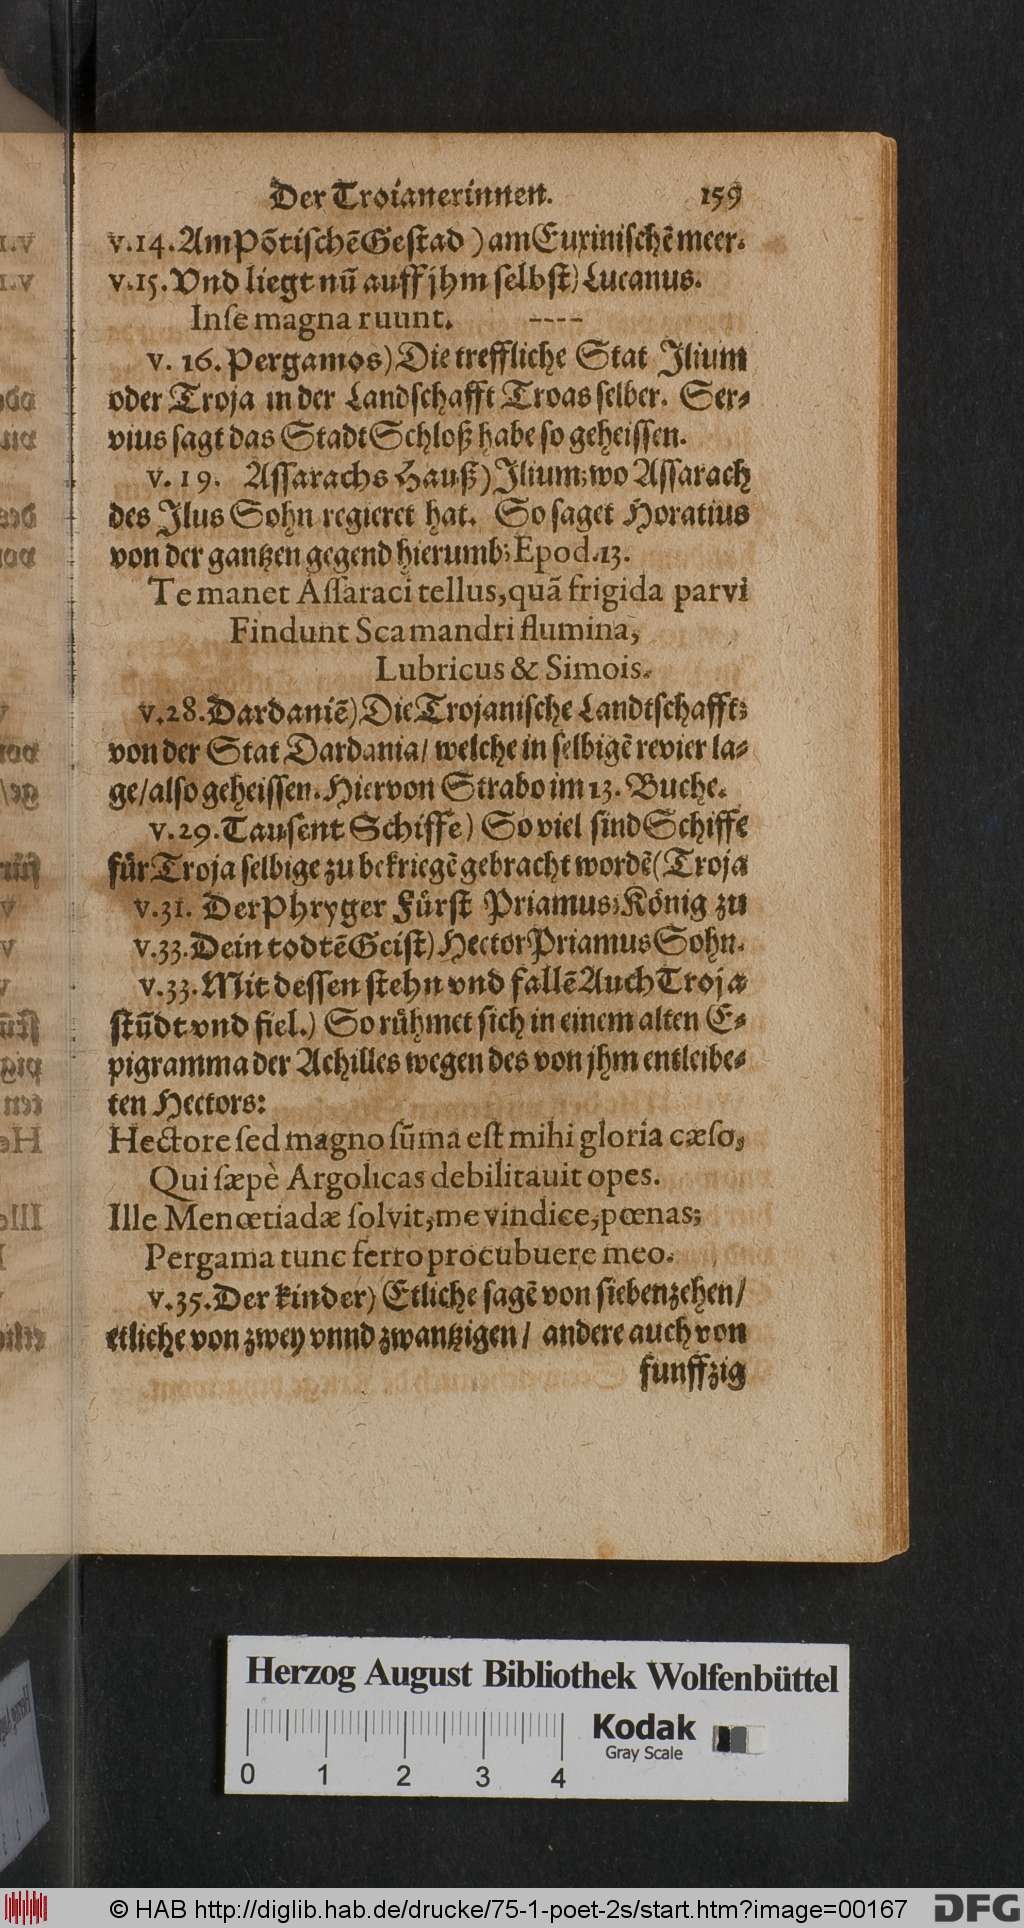 Der Troianerinnen. 159
v.14. Am Põtischẽ Gestad ) am Euxinischẽ meer.
v.15. Vnd liegt nũ auff jhm selbst) Lucanus.
Inſe magna ruunt. ----
v. 16. Pergamos) Die treffliche Stat Ilium
oder Troja in der Landschafft Troas selber. Ser-
vius sagt das Stadt Schloß habe so geheissen.
v. 19. Assarachs Hauß) Ilium; wo Assarach
des Ilus Sohn regieret hat. So saget Horatius
von der gantzen gegend hierumb; Epod.13.
Te manet Aſſaraci tellus, quã frigida parvi
Findunt Scamandri flumina,
Lubricus & Simois.
v.28. Dardaniẽ) Die Trojanische Landtschafft;
von der Stat Dardania/ welche in selbigẽ revier la-
ge/ also geheissen. Hiervon Strabo im 13. Buche.
v.29. Tausent Schiffe) So viel sind Schiffe
fuͤr Troja selbige zu bekriegẽ gebracht wordẽ (Troja
v.31. Der Phryger Fuͤrst Priamus; Koͤnig zu
v.33. Dein todtẽ Geist) Hector Priamus Sohn.
v.33. Mit dessen stehn vnd fallẽ Auch Troja
stũdt vnd fiel.) So ruͤhmet sich in einem alten E-
pigramma der Achilles wegen des von jhm entleibe-
ten Hectors:
Hectore ſed magno ſũma eſt mihi gloria cæſo,
Qui ſæpè Argolicas debilitavit opes.
Ille Menœtiadæ ſolvit, me vindice, pœnas;
Pergama tunc ferro procubuere meo.
v.35. Der kinder) Etliche sagẽ von siebenzehen/
etliche von zwey vnnd zwantzigen/ andere auch von
funffzig
Herzog August Bibliothek Wolfenbüttel
0 1 2 3 4
Kodak
Gray Scale
© HAB http://diglib.hab.de/drucke/75-1-poet-2s/start.htm?image=00167
DFG